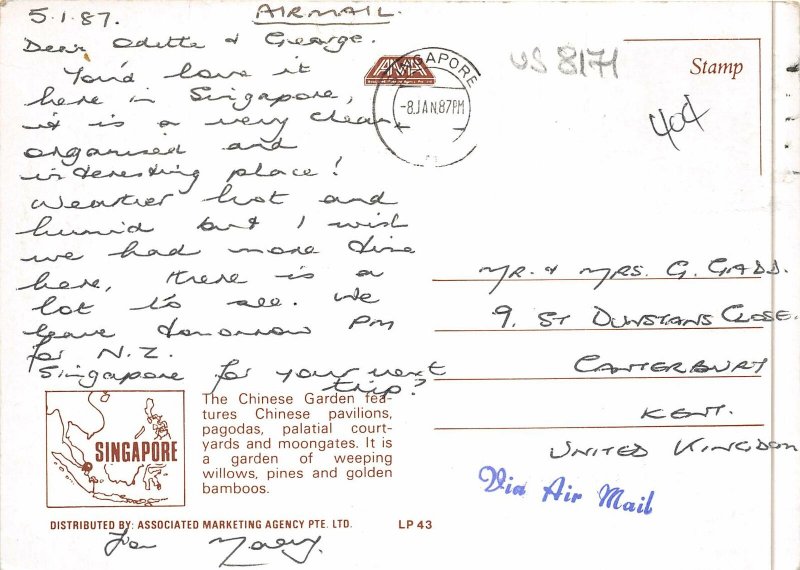 5.1.87.
AIRMAIL.
Dear Odette & George.
You'd love it
here in Singapore,
it is a very clean,
organised and
interesting place!
Weather hot and
humid but I wish
we had more time
here, there is a
lot to see. We
leave tomorrow PM
for N.Z.
Singapore for your next
trip?
AMA
SINGAPORE
-8.JAN.87PM
US 8171
Stamp
404
MR. & MRS. G. GADD.
9. ST DUNSTANS CLOSE.
CANTERBURY
KENT.
UNITED KINGDOM
Via Air Mail
SINGAPORE
The Chinese Garden fea-
tures Chinese pavilions,
pagodas, palatial court-
yards and moongates. It is
a garden of weeping
willows, pines and golden
bamboos.
DISTRIBUTED BY: ASSOCIATED MARKETING AGENCY PTE. LTD.
LP 43